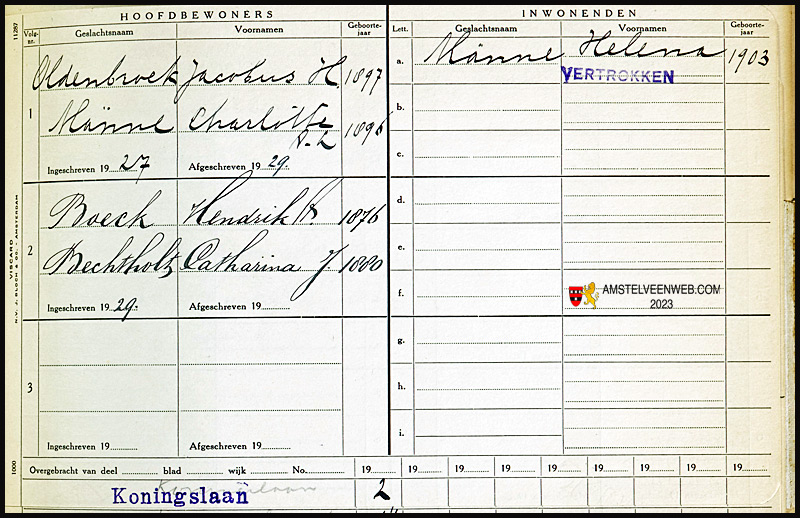 HOOFDBEWONERS
Volg-nr. Geslachtsnaam Voornamen Geboorte-jaar
Oldenbroek Jacobus H. 1897
1
Männe Charlotte 1896
Ingeschreven 19 27 Afgeschreven 19 29.
Boeck Hendrik A. 1876
2
Bechtholtz Catharina J. 1880
Ingeschreven 19 29. Afgeschreven 19
3
Ingeschreven 19 Afgeschreven 19
INWONENDEN
Lett. Geslachtsnaam Voornamen Geboorte-jaar
a. Männe Helena 1903
VERTROKKEN
b.
c.
d.
e.
f.
AMSTELVEENWEB.COM
2023
g.
h.
i.
Overgebracht van deel blad wijk No. 19 19 19 19 19 19 19 19 19
Koningslaan 2
11287
VISCARO
N.V. J. BLOCH & CO. - AMSTERDAM
1000